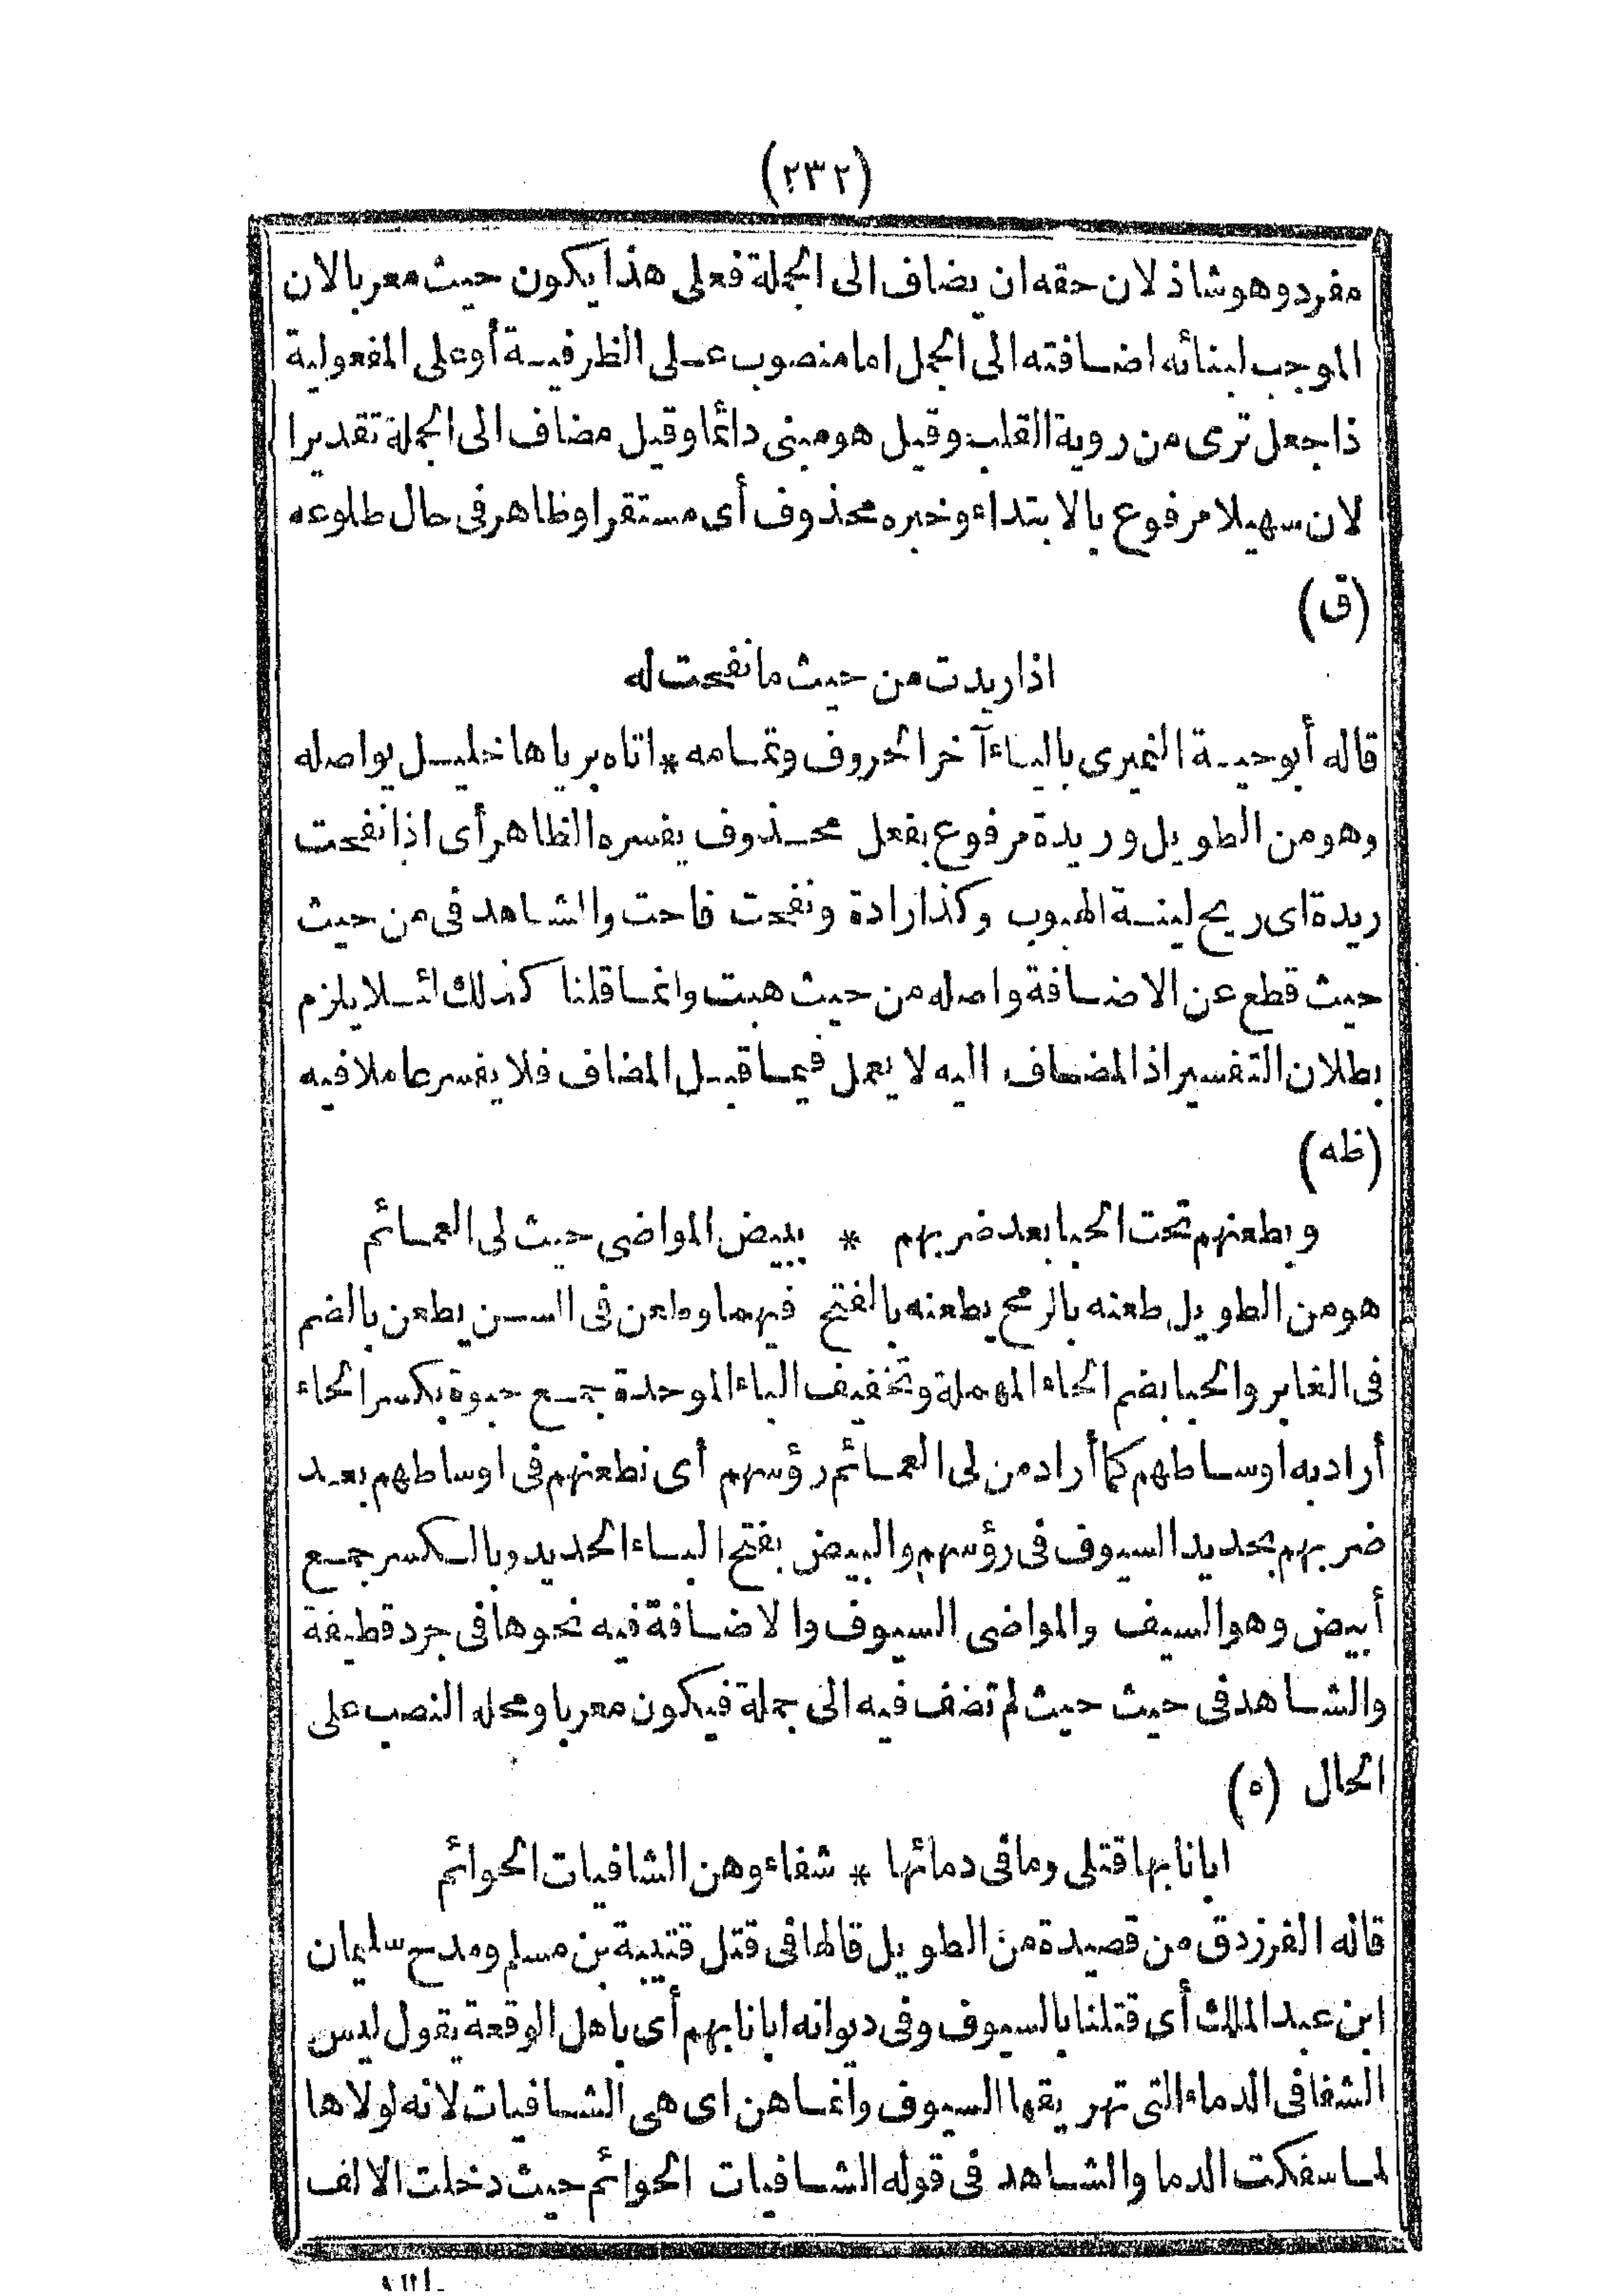 (٢٣٢)
مفرد وهو شاذ لان حقه ان يضاف الى الجملة فعلى هذا يكون حيث معربا لان
الموجب لبنائه اضافته الى الجمل اما منصوب على الظرفية أو على المفعولية
ذا جعل ترى من روية القلب وقيل هو مبنى دائما وقيل مضاف الى الجملة تقديرا
لان سهيلا مرفوع بالابتداء وخبره محذوف أى مستقر او ظاهر فى حال طلوعه
(ق)
اذا ريدت من حيث ما نفحت له
قاله أبو حية النميرى بالياء آخر الحروف وتمامه * اتاه برياها خليل يواصله
وهو من الطويل وريدة مرفوع بفعل محذوف يفسره الظاهر أى اذا نفحت
ريدة اى ريح لينة الهبوب وكذا رادة ونفحت فاحت والشاهد فى من حيث
حيث قطع عن الاضافة واصله من حيث هبت وانما قلنا كذلك لئلا يلزم
بطلان التفسير اذ المضاف اليه لا يعمل فيما قبل المضاف فلا يفسر عاملا فيه
(ظه)
ويطعنهم تحت الحبا بعد ضربهم * ببيض المواضى حيث لى العمائم
هو من الطويل طعنه بالرمح يطعنه بالفتح فيهما وطعن فى السن يطعن بالضم
فى الغابر والحبا بضم الحاء المهملة وتخفيف الباء الموحدة جمع حبوة بكسر الحاء
أراد به اوساطهم كما أراد من لى العمائم رؤسهم أى نطعنهم فى اوساطهم بعد
ضربهم بحديد السيوف فى رؤسهم والبيض بفتح الباء الحديد وبالكسر جمع
أبيض وهو السيف والمواضى السيوف والاضافة فيه نحوها فى جرد قطيفة
والشاهد فى حيث حيث لم تضف فيه الى جملة فيكون معربا ومحله النصب على
الحال (ه)
ابانا بها قتلى وما فى دمائها * شفاء وهن الشافيات الحوائم
قاله الفرزدق من قصيدة من الطويل قالها فى قتل قتيبة بن مسلم ومدح سليمان
ابن عبد الملك أى قتلنا بالسيوف وفى ديوانه ابانا بهم أى باهل الوقعة يقول ليس
الشفا فى الدماء التى تهريقها السيوف وانما هن اى هى الشافيات لانه لولاها
لما سفكت الدما والشاهد فى قوله الشافيات الحوائم حيث دخلت الالف